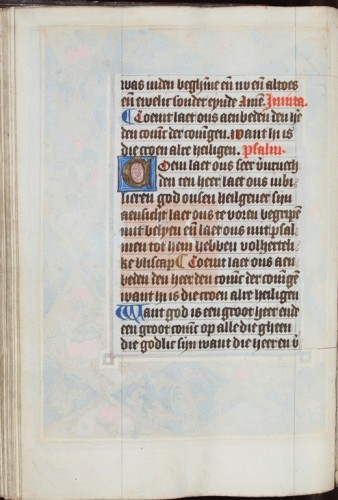 was inden beghīne eñ nv eñ altoes
eñ ewelic sonder eynde Amē. Inuita.
Coemt laet ons aenbeden den he
den coninc der coningen. want hi is
die croen alre heiligen. Psalm.
Coem laet ons seer v̄uruech
den den heer laet ons iubi
lieren god onsen heilgeuer sijn
aensicht laet ons te voren begripen
mit belyen eñ laet ons mit psal
men tot hem hebben volhertelt
ke bliscap Coemt laet ons aen
beden den heer den coninc der coningē
want hi is die croen alre heiligen
Want god is een groot heer ende
een groot coninc op alle die gheen
die godlic sijn want die heer en v̄